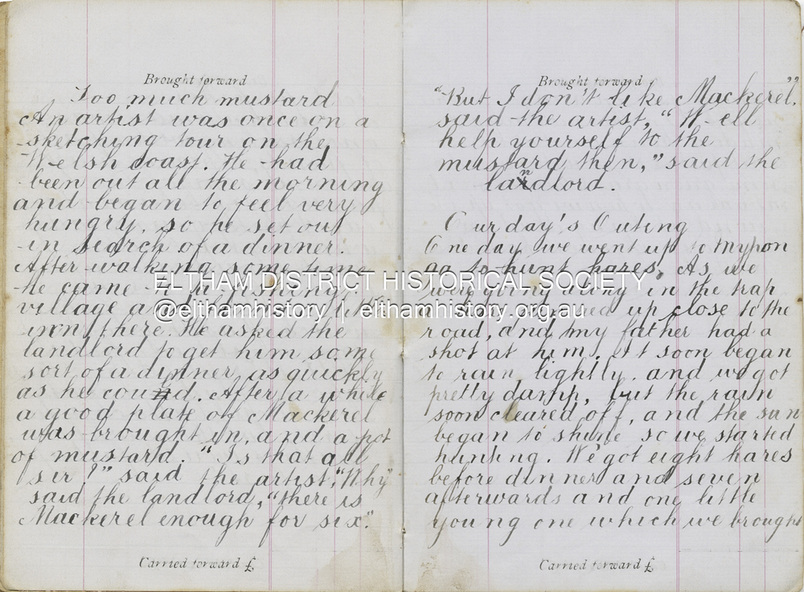 Brought forward
Too much mustard
An artist was once on a
sketching tour on the
Welsh coast. He had
been out all the morning
and began to feel very
hungry. so he set out
in search of a dinner.
After walking some time
he came to a fishing
village and
inn there. He asked the
landlord to get him some
sort of a dinner as quickly
as he could. After a while
a good plate of Mackerel
was brought in, and a pot
of mustard. "Is that all
sir!" said the artist, "Why"
said the landlord, "there is
Mackerel enough for six."
Carried forward £
Brought forward
"But I don't like Mackerel."
said the artist, "Well
help yourself to the
mustard then," said the
landlord.
Our day's Outing
One day we went up to Mypon
ga to hunt hares. As we
were going along in the trap
up close to the
road, and my father had a
shot at him. It soon began
to rain lightly, and we got
pretty damp, but the rain
soon cleared off, and the sun
began to shine so we started
hunting. We got eight hares
before dinner and seven
afterwards and one little
young one which we brought
Carried forward £
ELTHAM DISTRICT HISTORICAL SOCIETY
@elthamhistory elthamhistory.org.au